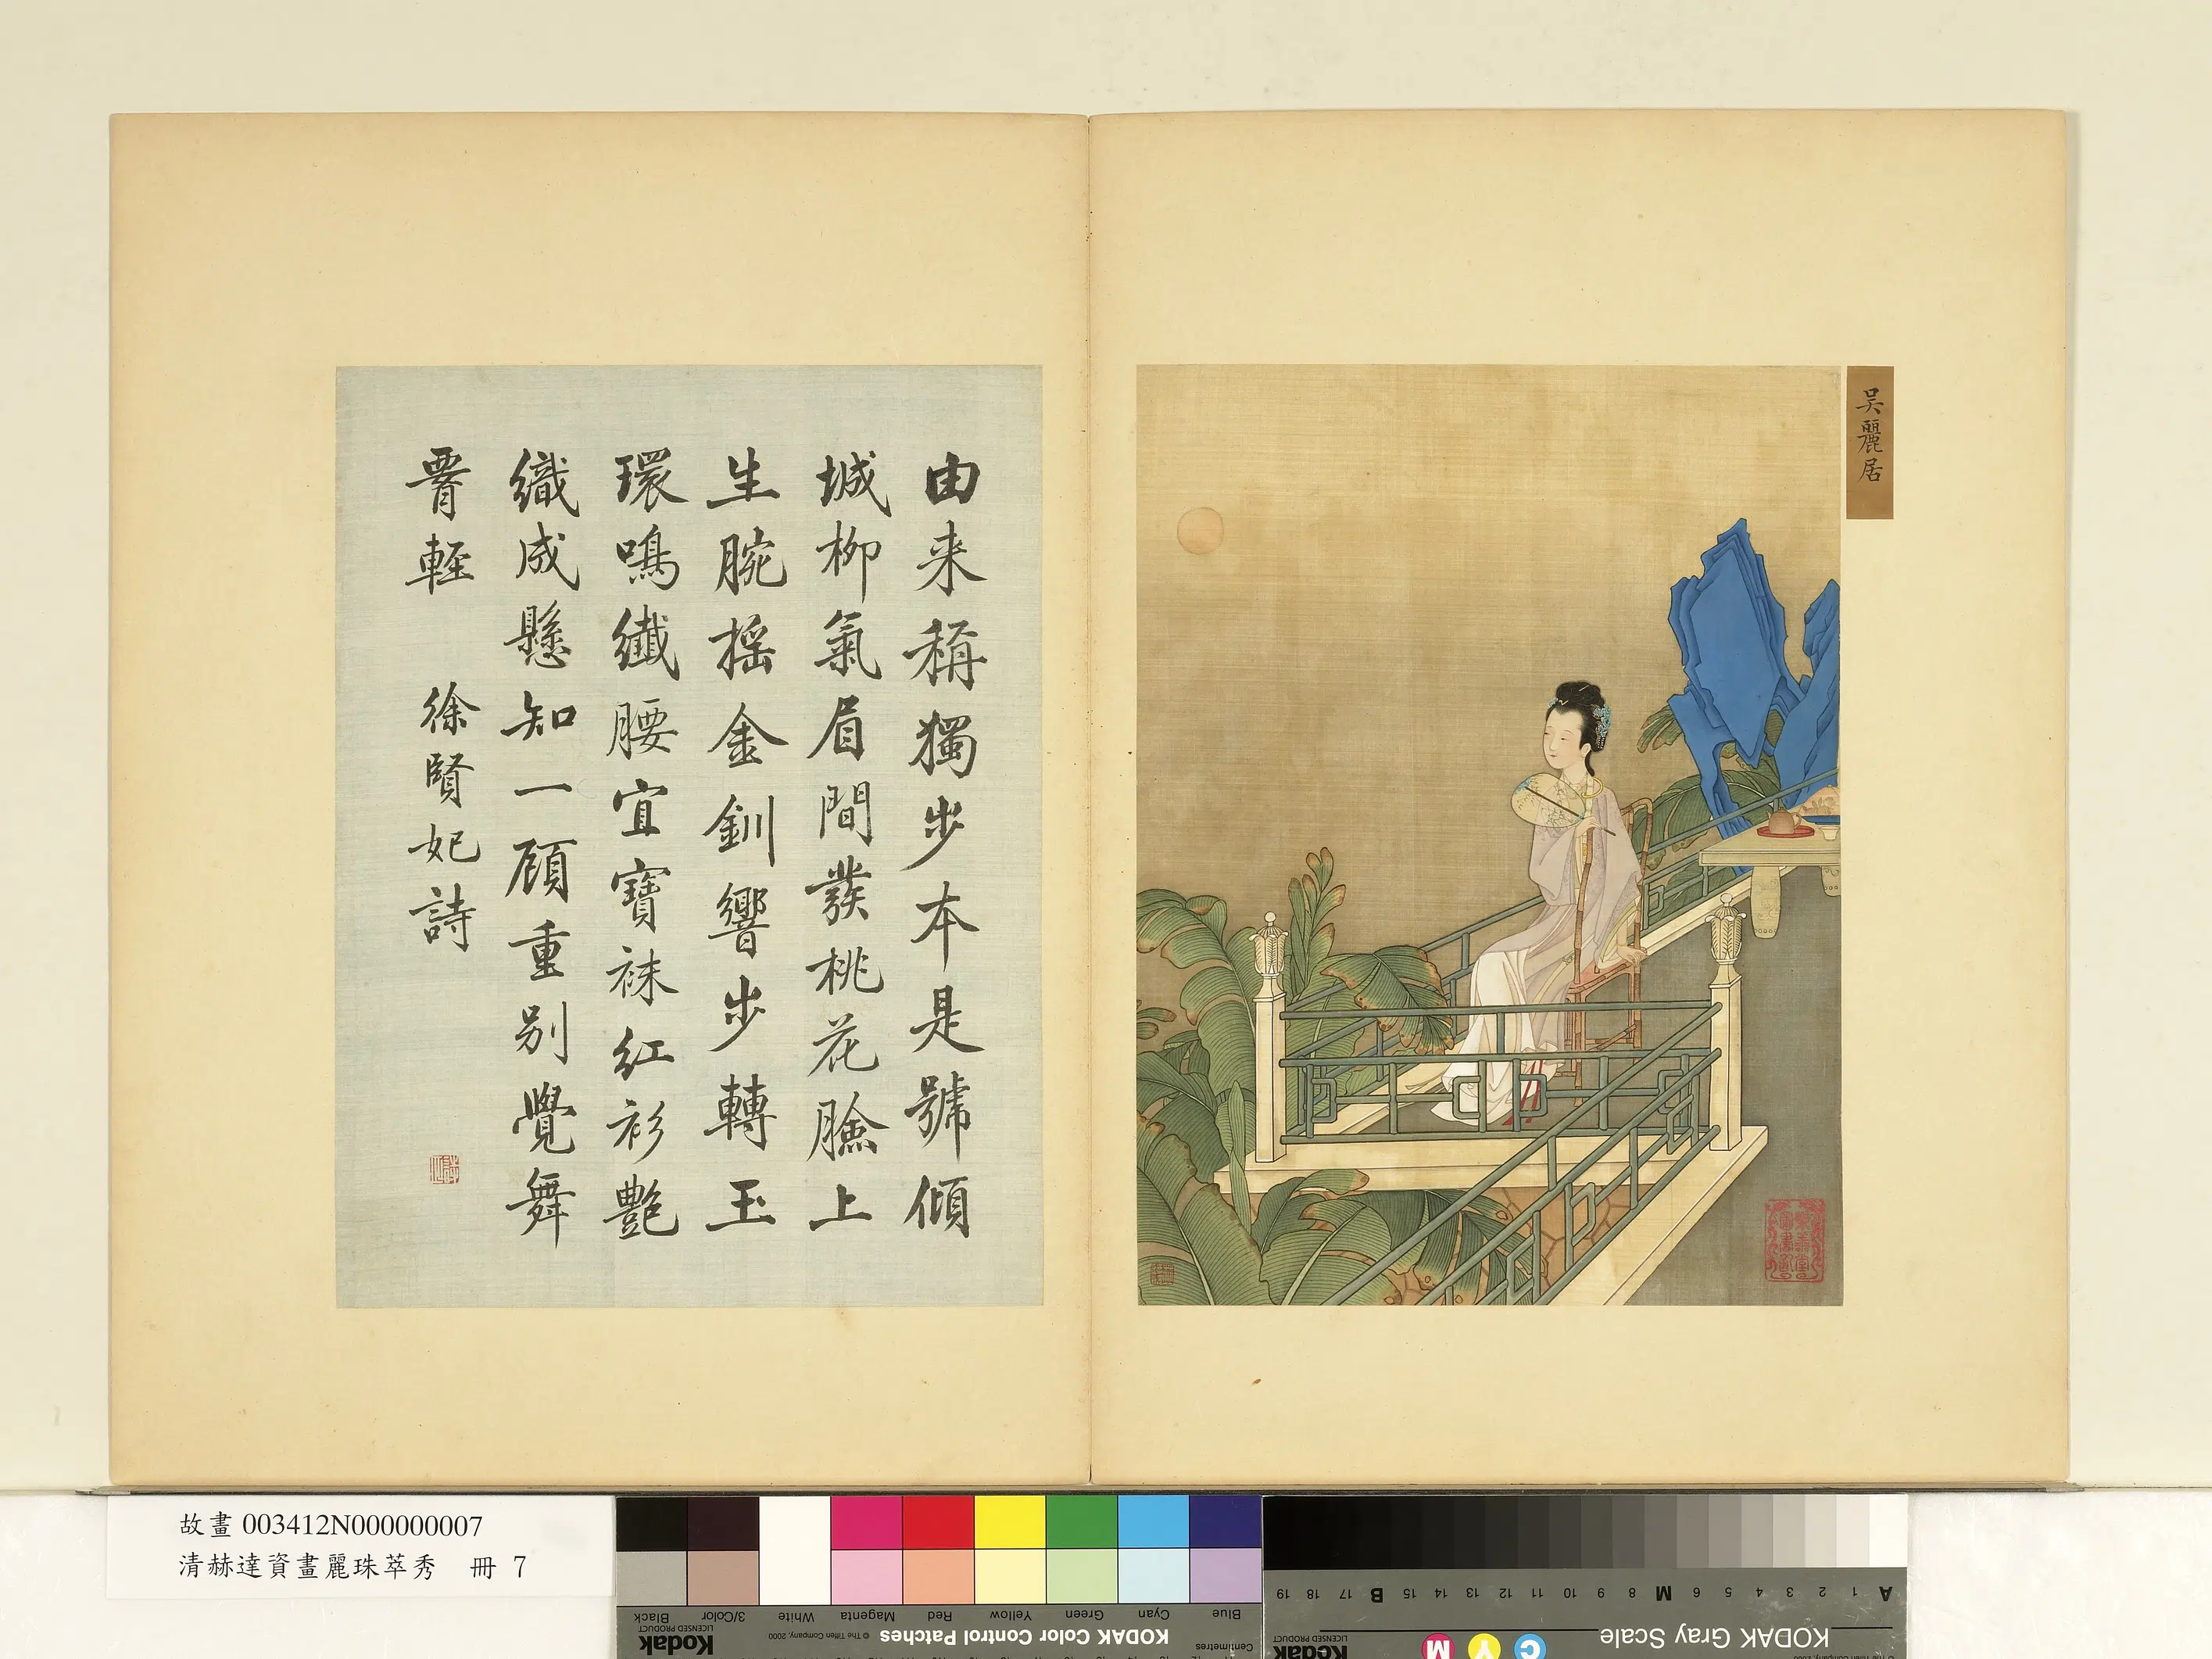 吴麗居
樂善堂
圖書記
由来稱獨步本是號傾
城柳氣眉間發桃花臉上
生腕摇金釧響步轉玉
環鳴纖腰宜寶袜紅衫艷
織成懸知一顧重別覺舞
腰輕 徐賢妃詩
故畫 003412N000000007
清赫達資畫麗珠萃秀 冊 7
Centimetres
Blue Cyan Green Yellow Red Magenta White 3/Color Black
KODAK Color Control Patches © The Tiffen Company, 2000 Kodak LICENSED PRODUCT
A 1 2 3 4 5 6 M 8 9 10 11 12 13 14 15 B 17 18 19
KODAK Gray Scale
C Y M Kodak LICENSED PRODUCT
© The Tiffen Company, 2000